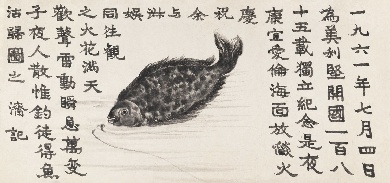 一九六一年七月四日
為美利堅開國一百八
十五載獨立紀念是夜
康宜愛倫海面放燄火
慶
祝
余
与
娛
同往觀
之火花滿天
歡聲雷動瞬息萬变
子夜人散惟釣徒得魚
圖之 濟記